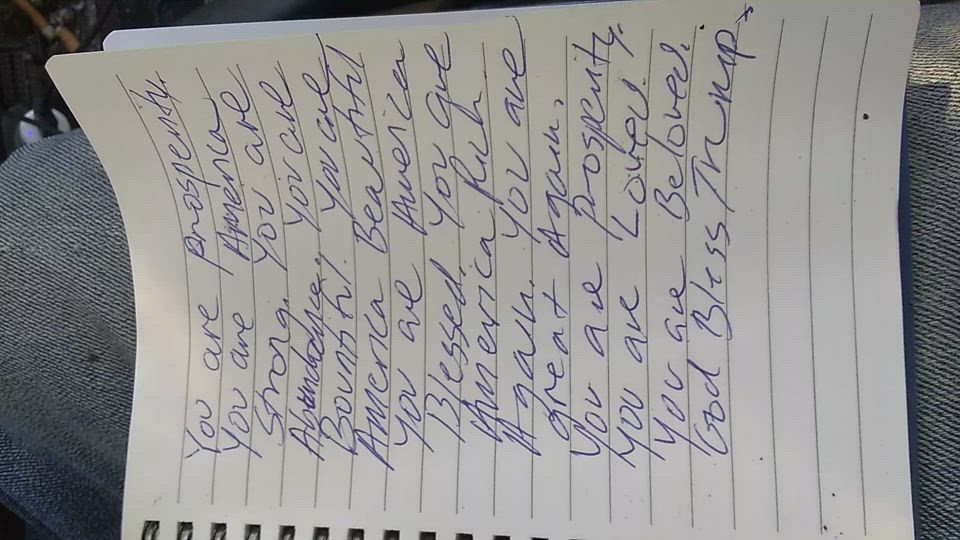 You are prosperity.
You are America
Strong. You are
Abundance. You are
Bountiful. You are
America Beautiful
You are America
Blessed. You are
America Rich
Again. You are
great Again.
You are prosperity.
You are Loved!
You are Beloved!
God Bless Trump